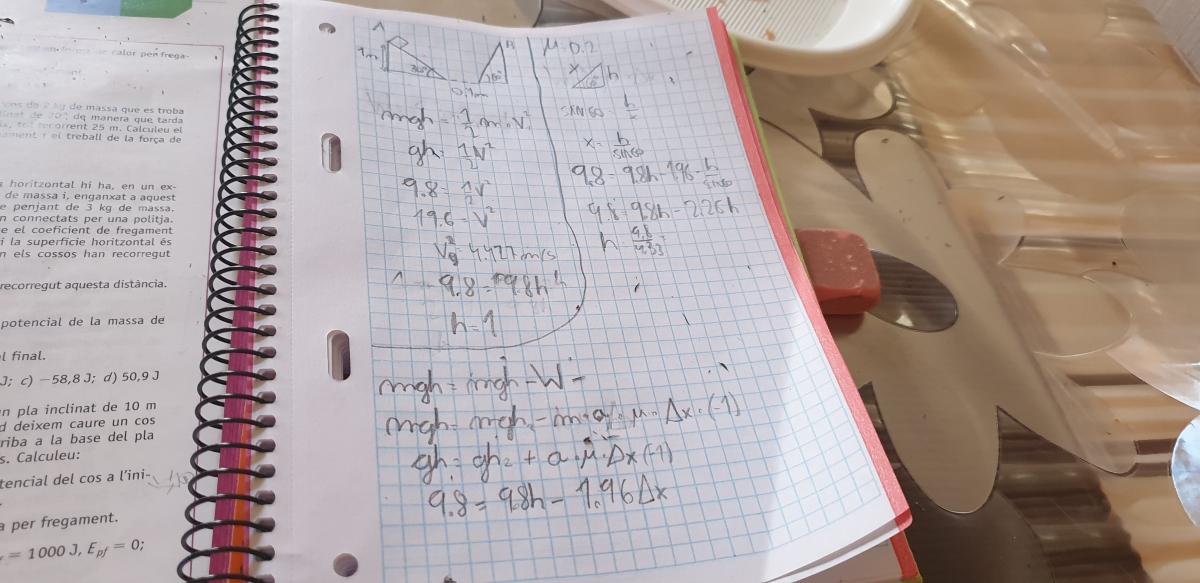 calor per frega-
ons de 2 kg de massa que es troba
linat de 30°, de manera que tarda
recorrent 25 m. Calculeu el
nament i el treball de la força de
horitzontal hi ha, en un ex-
de massa i, enganxat a aquest
e penjant de 3 kg de massa.
n connectats per una politja.
e el coeficient de fregament
i la superfície horitzontal és
n els cossos han recorregut
recorregut aquesta distància.
potencial de la massa de
l final.
J; c) −58,8 J; d) 50,9 J
n pla inclinat de 10 m
d deixem caure un cos
rriba a la base del pla
s. Calculeu:
tencial del cos a l'ini-
a per fregament.
= 1000 J, Epf = 0;
A
1m
30°
B
60°
mgh = 1/2 m · v²
gh = 1/2 v²
9.8 = 1/2 v²
19.6 = v²
9.8 = 9.8h
h = 1
μ = 0.2
x
h
sin 60 = h/x
x = h/sin60
9.8 = 9.8h - 1.96 · h/sin60
9.8 = 9.8h - 2.26h
mgh = mgh - W
mgh = mgh₂ - m · a · μ · Δx · (-1)
gh = gh₂ + a · μ · Δx (-1)
9.8 = 9.8h - 1.96 Δx